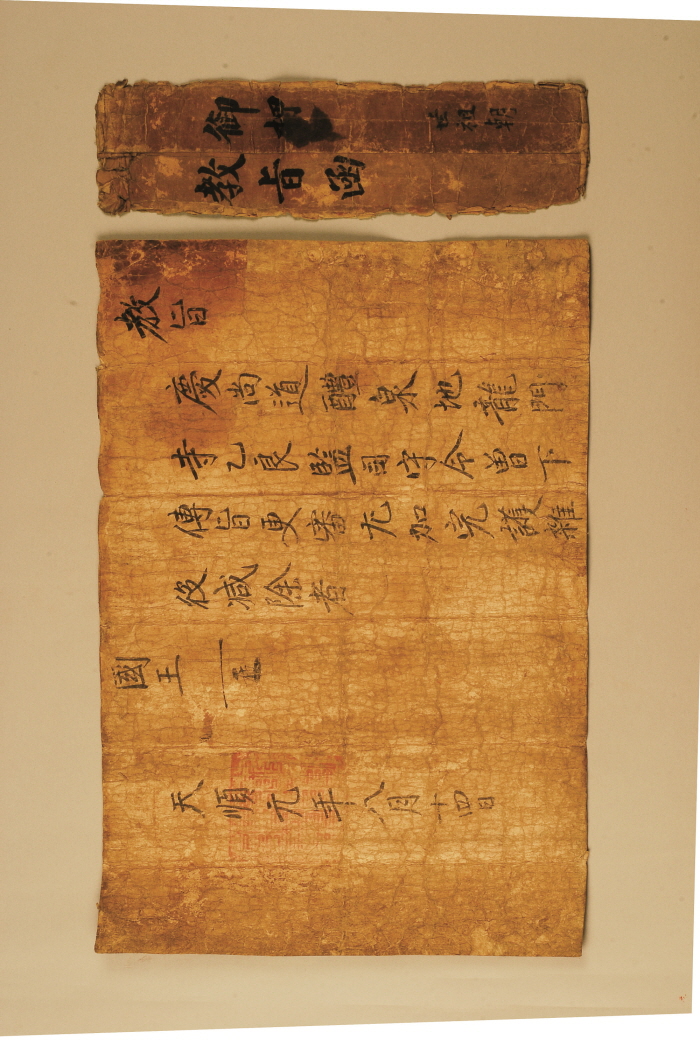 御押
世祖朝
教旨函
教旨
慶尚道醴泉地龍門
寺乙良監司守令曾下
傳旨更審尤加完護雜
後減除者
國王
天順元年八月十四日